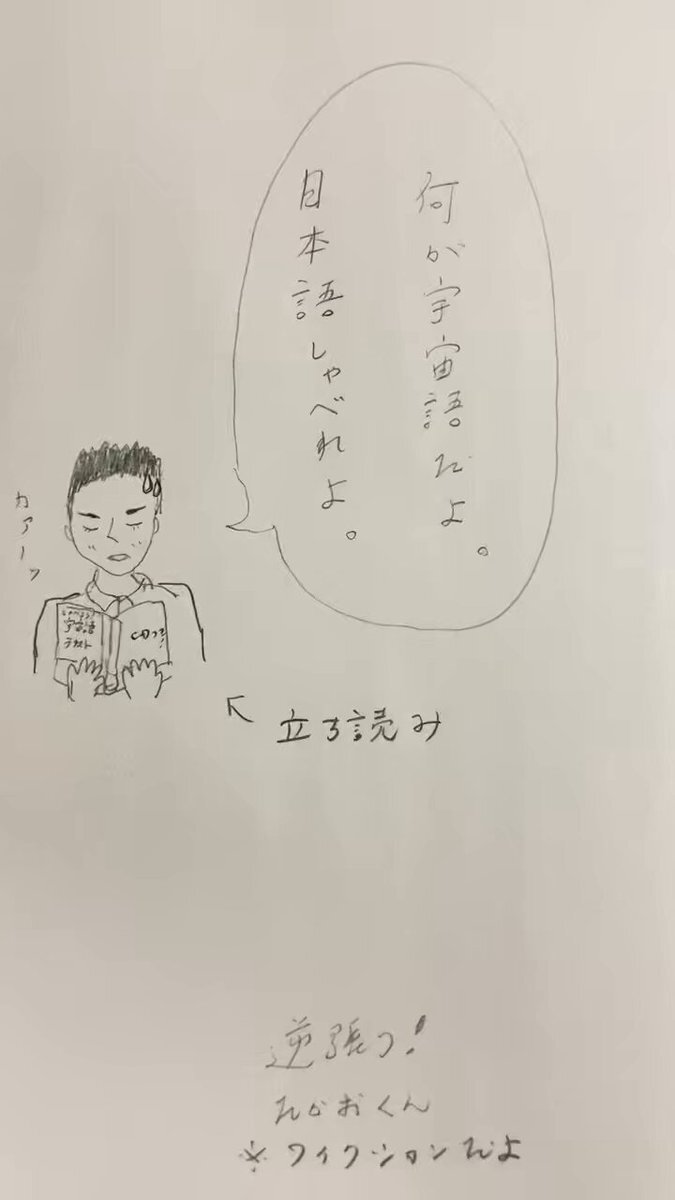 何が宇宙語だよ。
日本語しゃべれよ。
カァーッ
宇宙語
テキスト
←
立ち読み
逆張り!
おくん
※フィクションだよ